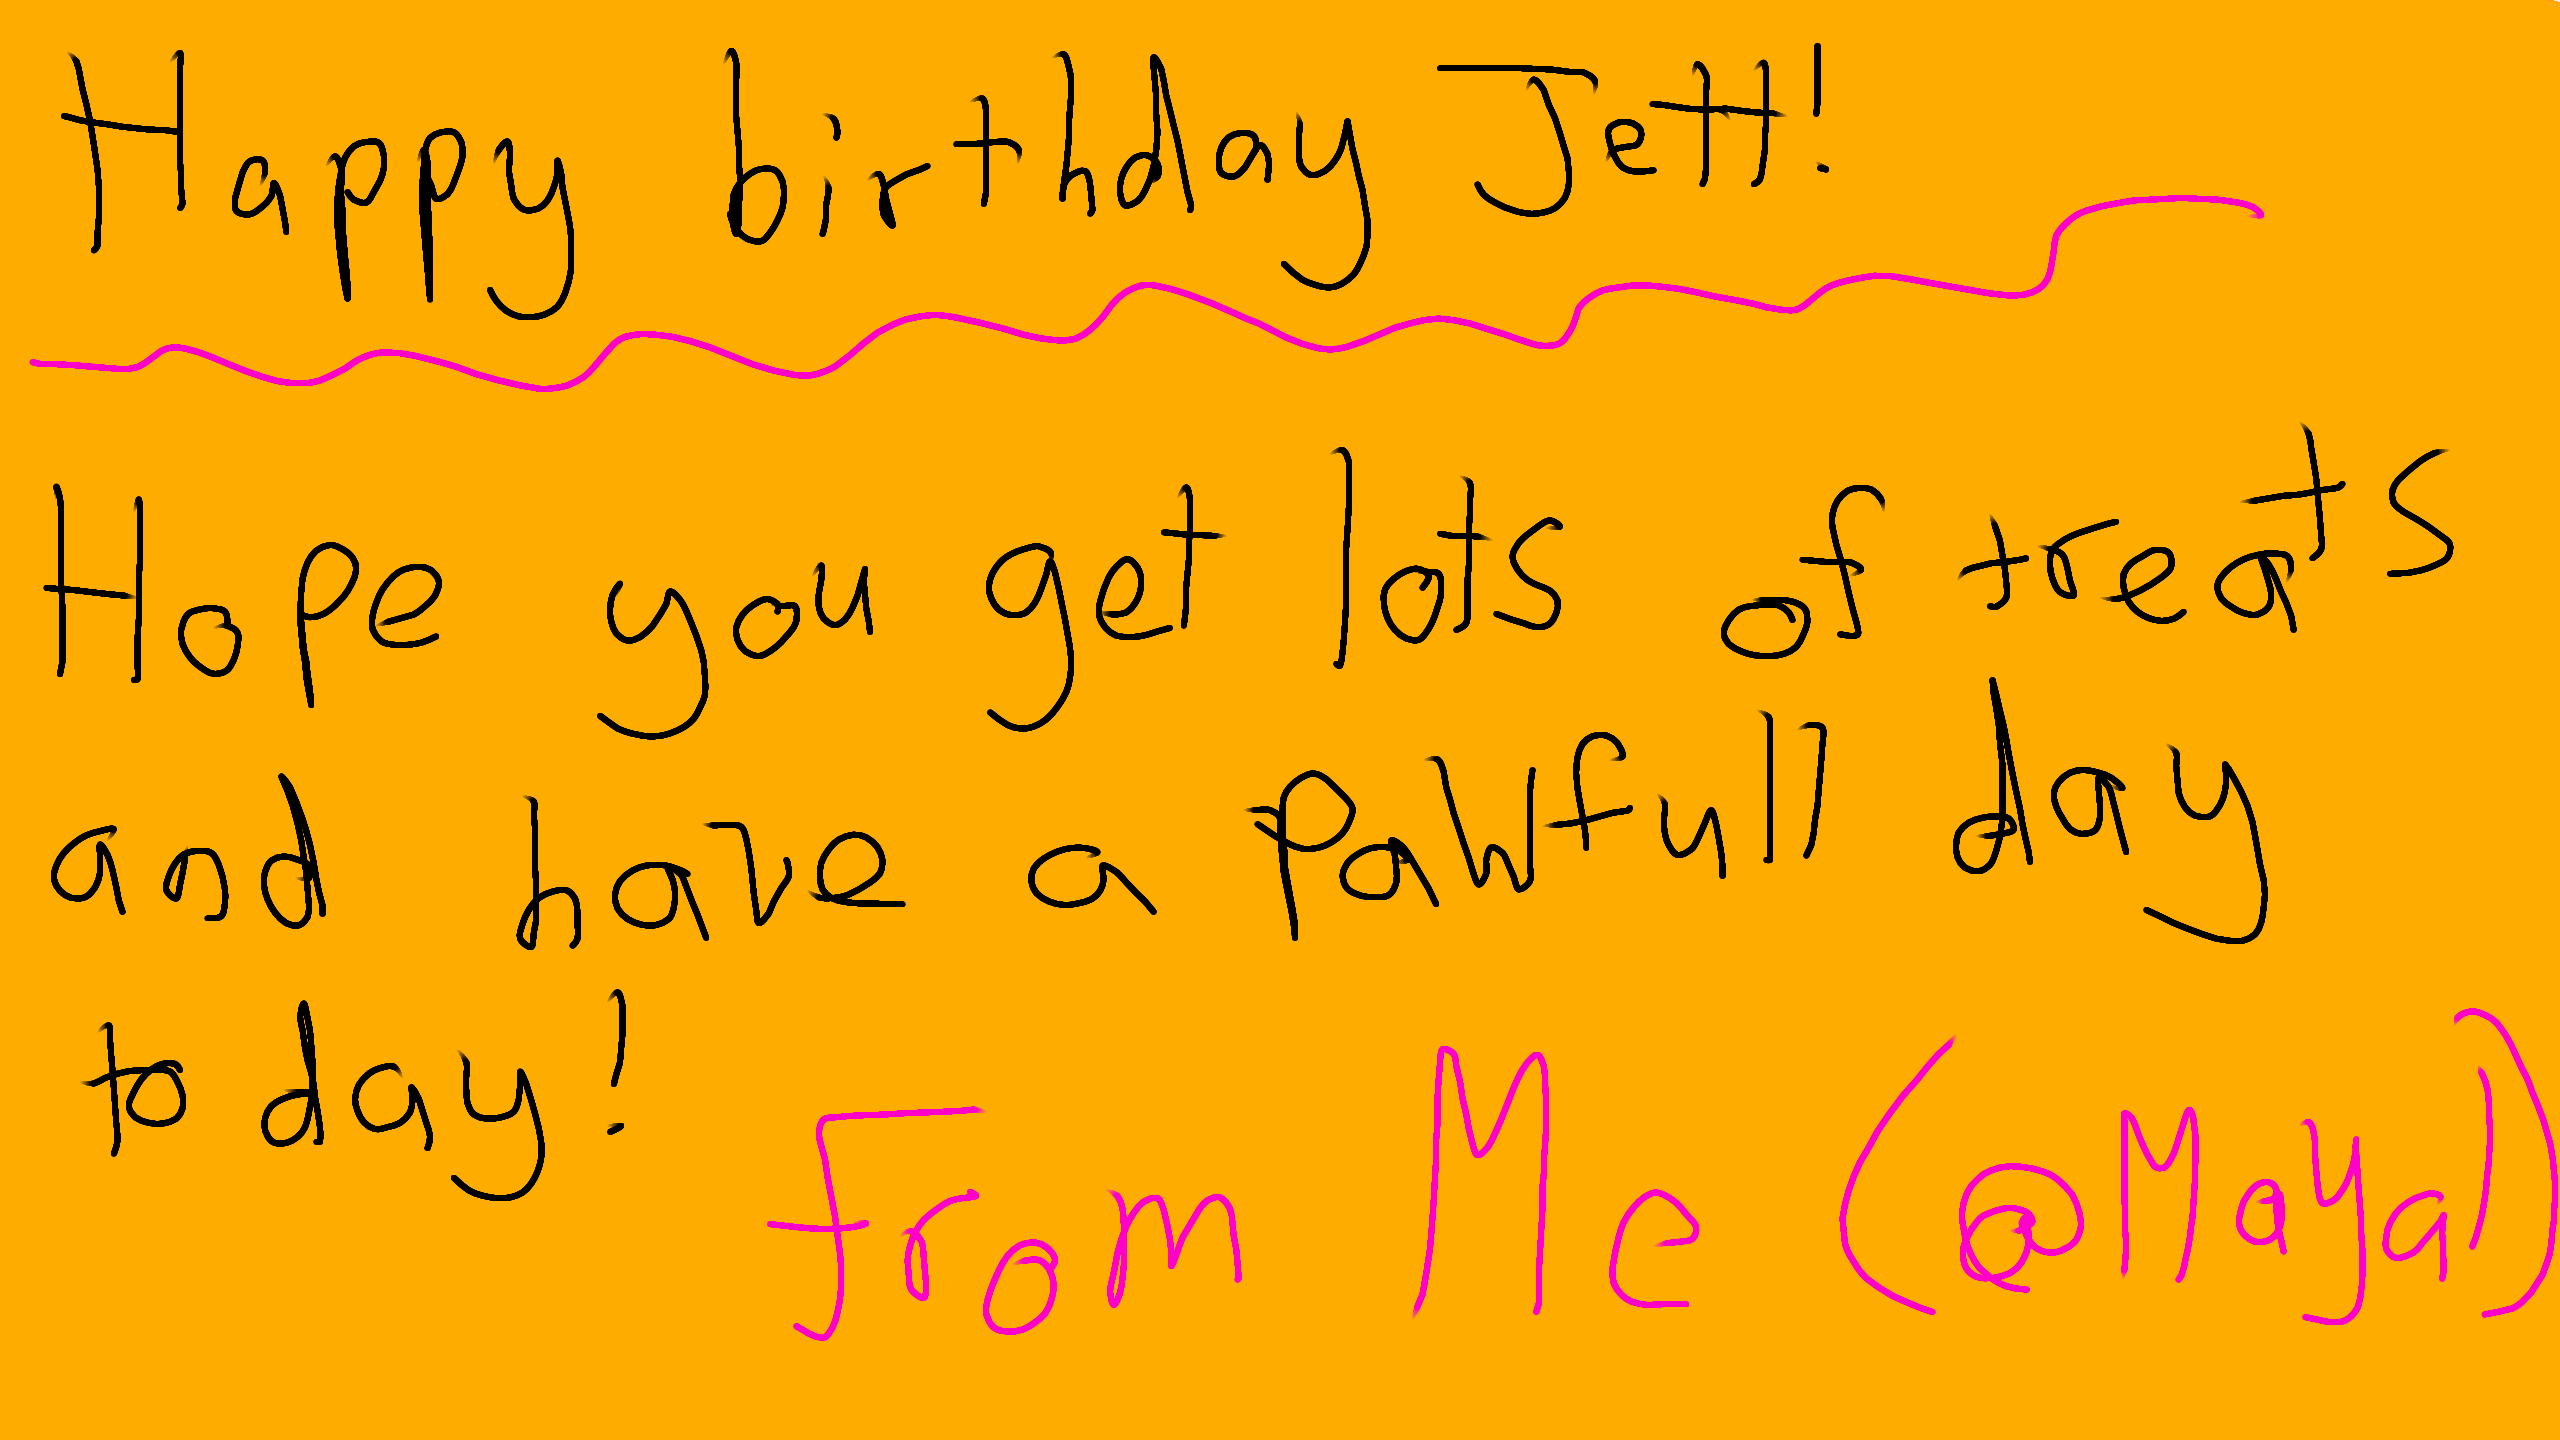 Happy birthday Jett!
Hope you get lots of treats
and have a Pawfull day
today!
From Me (@Maya)